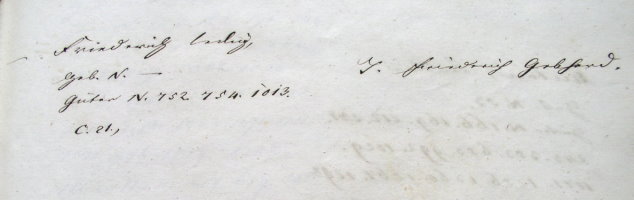 Friederich ledig,
J. Friedrich Gebhard.
Geb. N. —
Güter N. 752. 754. 1013.
C. 21.,